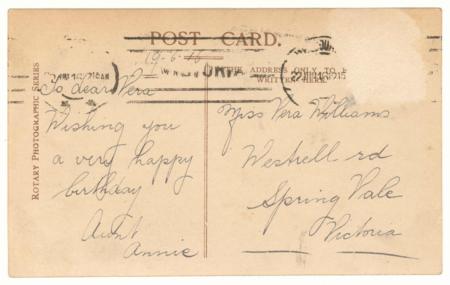 POST CARD.
THE ADDRESS ONLY TO
WRITTEN HERE
ROTARY PHOTOGRAPHIC SERIES
To dear Vera
Wishing you
a very happy
birthday
Aunt
Annie
Miss Vera Williams
Westrell rd
Spring Vale
Victoria